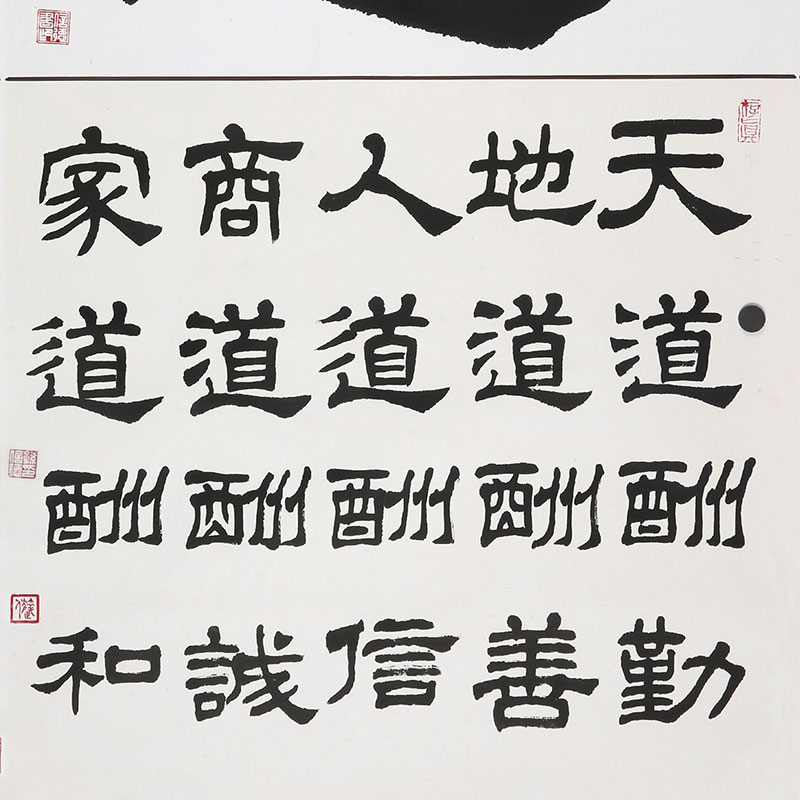 天道酬勤
地道酬善
人道酬信
商道酬誠
家道酬和